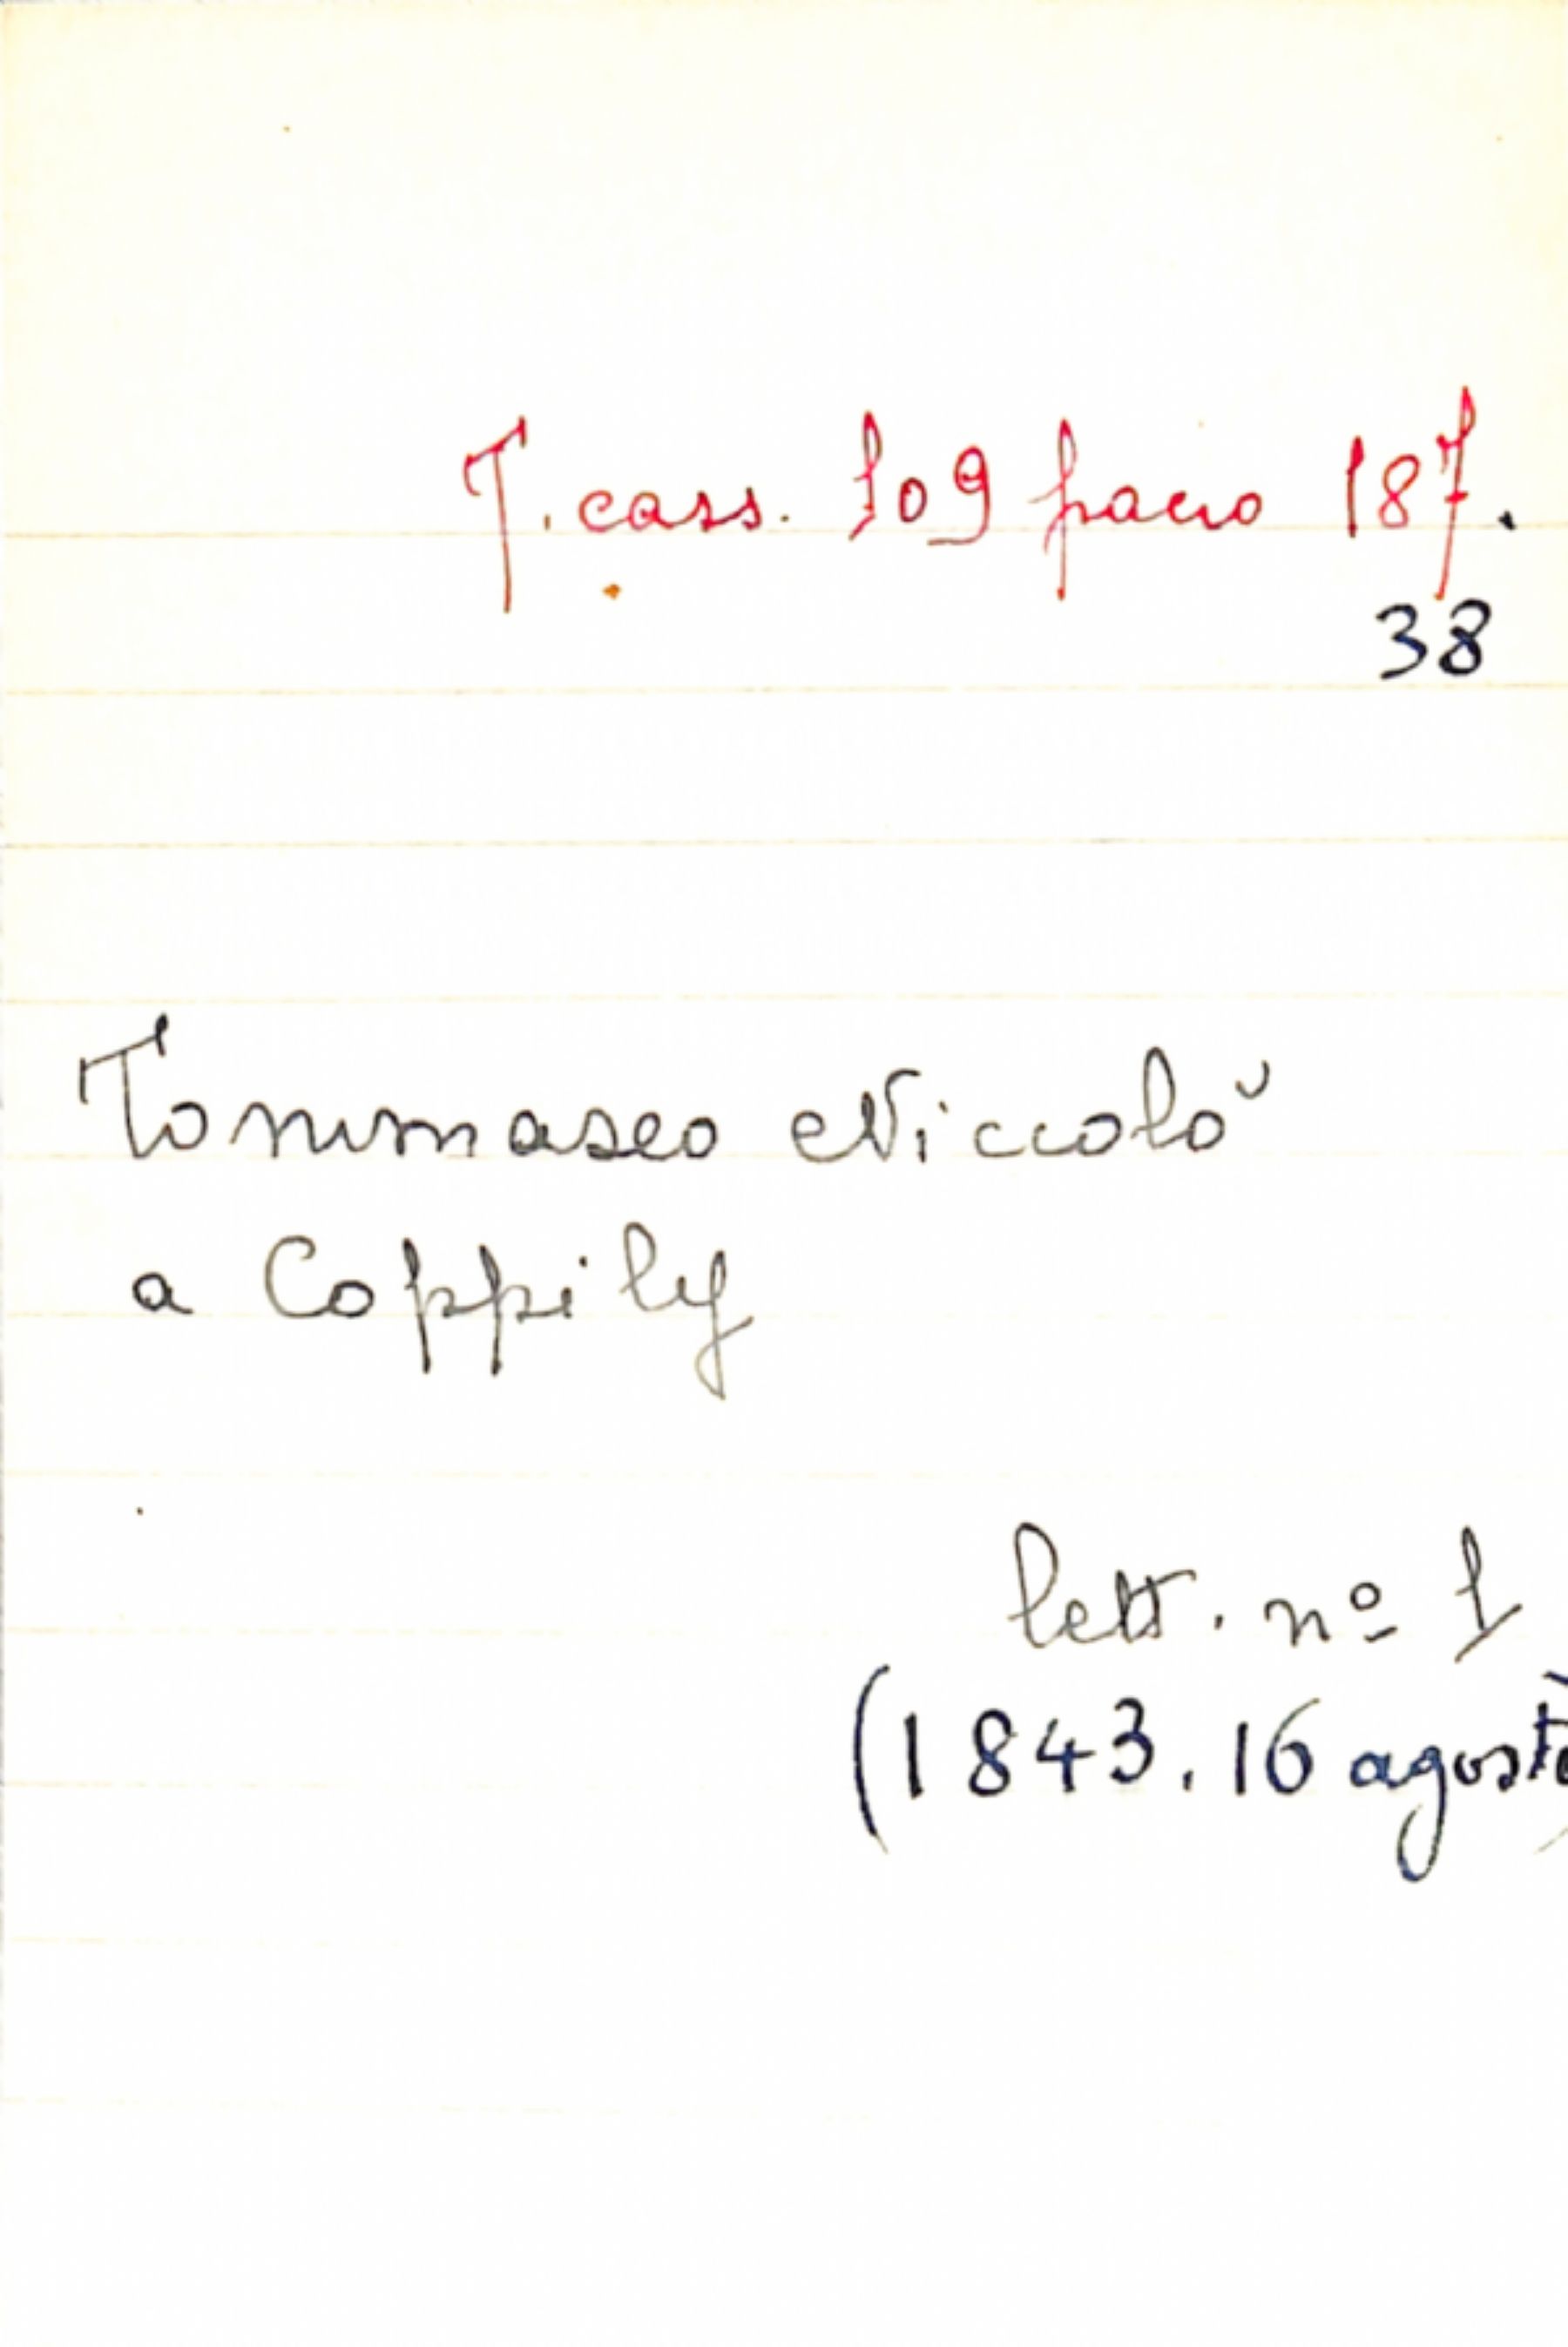 T. cass. 109 pacco 187.
38
Tommaseo Niccolò
a Coppily
lett. nº 1
(1843. 16 agosto)